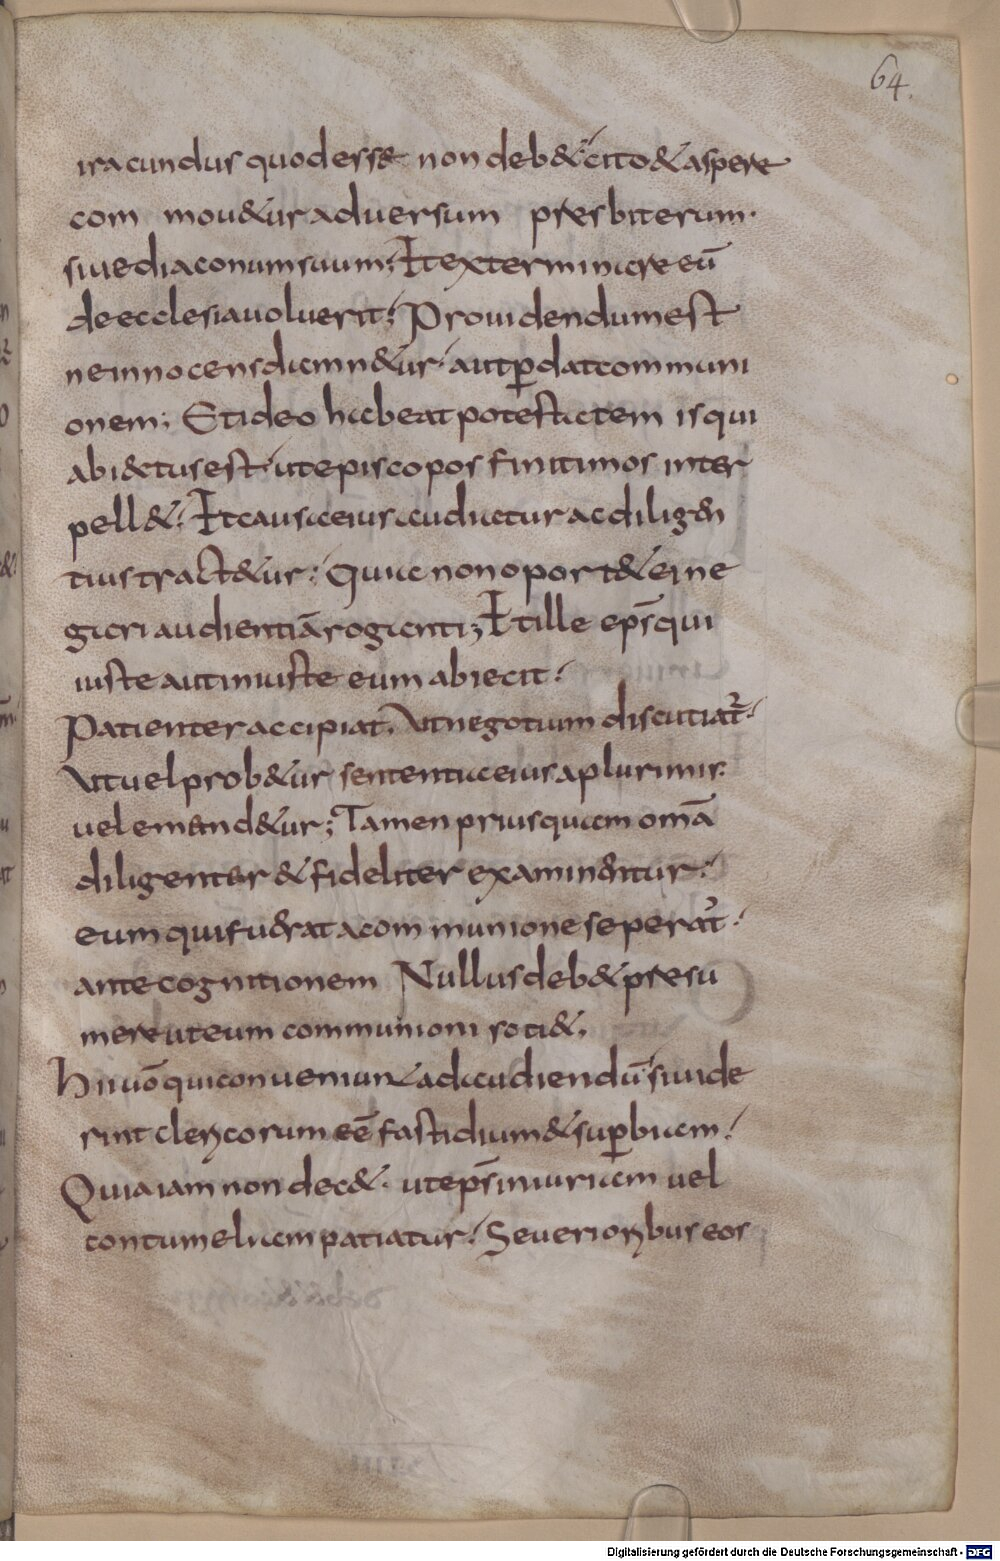 64.
iracundus quod esse non deb& cito & aspere
com mou&ur aduersum presbiterum.
siue diaconum suum; Et exterminare eū
de ecclesia uoluerit; Prouidendum est
ne innocens damn&ur. aut ꝑdat communi
onem; Et ideo habeat potestatem is qui
abiectus est. ut episcopos finitimos inter
pell&. Et causa eius audiatur ac diligen
tius tract&ur. Quia non oport& ei ne
gari audientiā roganti; Et ille ep̄s qui
iuste aut iniuste eum abiecit.
Patienter accipiat. Ut negotium discutiat᷑.
Ut uel prob&ur sententia eius a plurimis.
uel emend&ur; Tamen priusquam omā
diligenter & fideliter examinentur.
eum qui fuerat a communione seperat᷑.
ante cognitionem Nullus deb& presu
mere ut eum communioni soci&.
Hii uō qui conueniunt ad audiendū si uide
rint clericorum eē fastidium & suꝑbiam.
Quia iam non dec&. ut ep̄s iniuriam uel
contumeliam patiatur. Seuerioribus eos
Digitalisierung gefördert durch die Deutsche Forschungsgemeinschaft - DFG